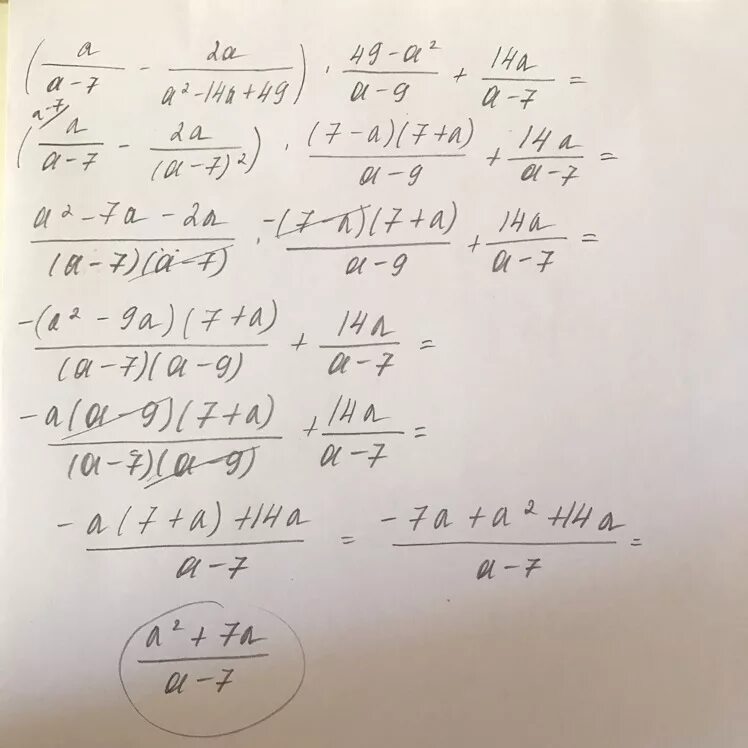 (a/(a-7) - 2a/(a²-14a+49)) · (49-a²)/(a-9) + 14a/(a-7) =
(a/(a-7) - 2a/(a-7)²) · (7-a)(7+a)/(a-9) + 14a/(a-7) =
a-7
(a²-7a-2a)/((a-7)(a-7)) · -(7-a)(7+a)/(a-9) + 14a/(a-7) =
-(a²-9a)(7+a)/((a-7)(a-9)) + 14a/(a-7) =
-a(a-9)(7+a)/((a-7)(a-9)) + 14a/(a-7) =
(-a(7+a)+14a)/(a-7) = (-7a+a²+14a)/(a-7) =
(a²+7a)/(a-7)